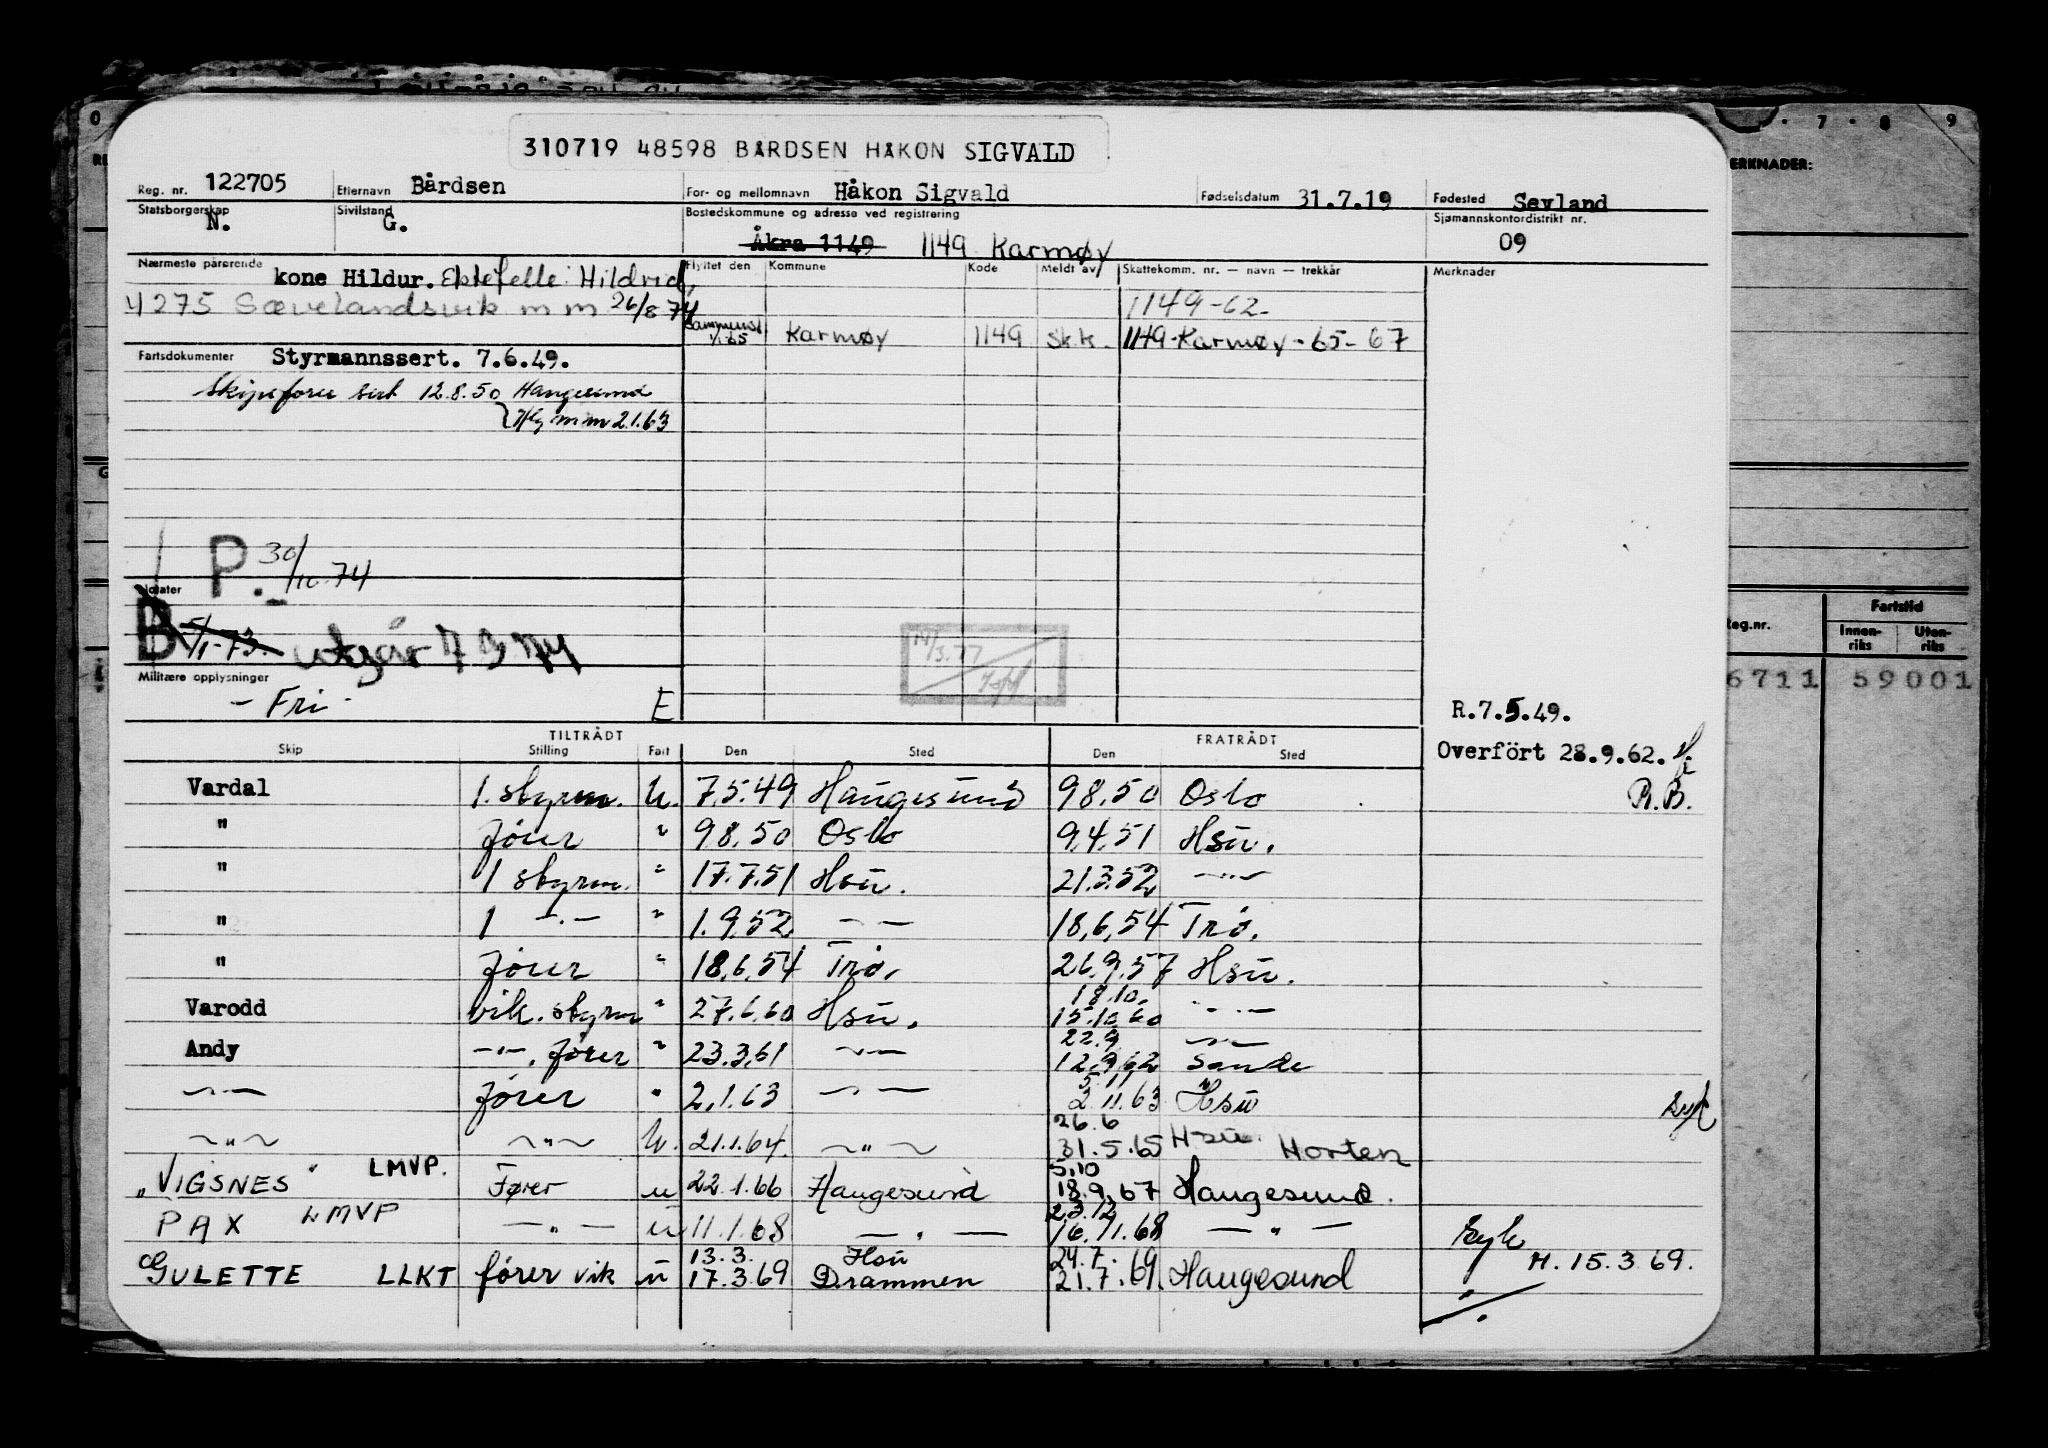 310719 48598 BÅRDSEN HÅKON SIGVALD
Reg. nr. 122705 Etternavn Bårdsen For- og mellomnavn Håkon Sigvald Fødselsdatum 31.7.19 Fødested Sevland
Statsborgerskap N. Sivilstand G. Bostedskommune og adresse ved registrering Åkra 1149 1149 Karmøy Sjømannskontordistrikt nr. 09
Nærmeste pårørende kone Hildur. Ektefelle: Hildrid,
4275 Sævelandsvik m m 26/8 74
Flyttet den Kommune Kode Meldt av Skattekomm. nr. — navn — trekkår Merknader
1149-62-
Sammensl. 1/1-65 Karmøy 1149 Sk.k. 1149-Karmøy-65-67
Fartsdokumenter Styrmannssert. 7.6.49.
Skipsfører sert 12.8.50 Haugesund
Hsg m m 2.1.63
P. 30/10-74
Notater
B 5/1-73. utgår 7 3 74
Militære opplysninger
- Fri - E
R.7.5.49.
Overført 28.9.62.
R.B.
TILTRÅDT FRATRÅDT
Skip Stilling Fart Den Sted Den Sted
Vardal 1. styrm. U. 7.5.49 Haugesund 9.8.50 Oslo
" fører " 9.8.50 Oslo 9.4.51 Hsu.
" 1 styrm. " 17.7.51 Hsu. 21.3.52 —"—
" 1 —.— " 1.9.52 — — 18.6.54 Trø.
" fører " 18.6.54 Trø. 26.9.57 Hsu.
Varodd vik. styrm " 27.6.60 Hsu. 18.10. 15.10.60 — " —
Andy —"—. fører " 23.3.61 —"— 22.9 12.9.62 —"— Sande
—"— fører " 2.1.63 —"— 5.11 2.11.63 Hsu
—"— —"— U. 21.1.64. —"— 26.6 31.5.65 Hsu. Horten
"VIGSNES" LMVP. Fører u 22.1.66 Haugesund 5.10 18.9.67 Haugesund.
PAX LMVP —"— u 11.1.68 —"— 23.12 16.11.68 —"— Syk
GULETTE LLKT fører vik u 13.3. 17.3.69 Hsu Drammen 24.7. 21.7.69. Haugesund H. 15.3.69.
7 . 8 9
ERKNADER:
Reg.nr. Fartstid
Innen-riks Uten-riks
6711 59001